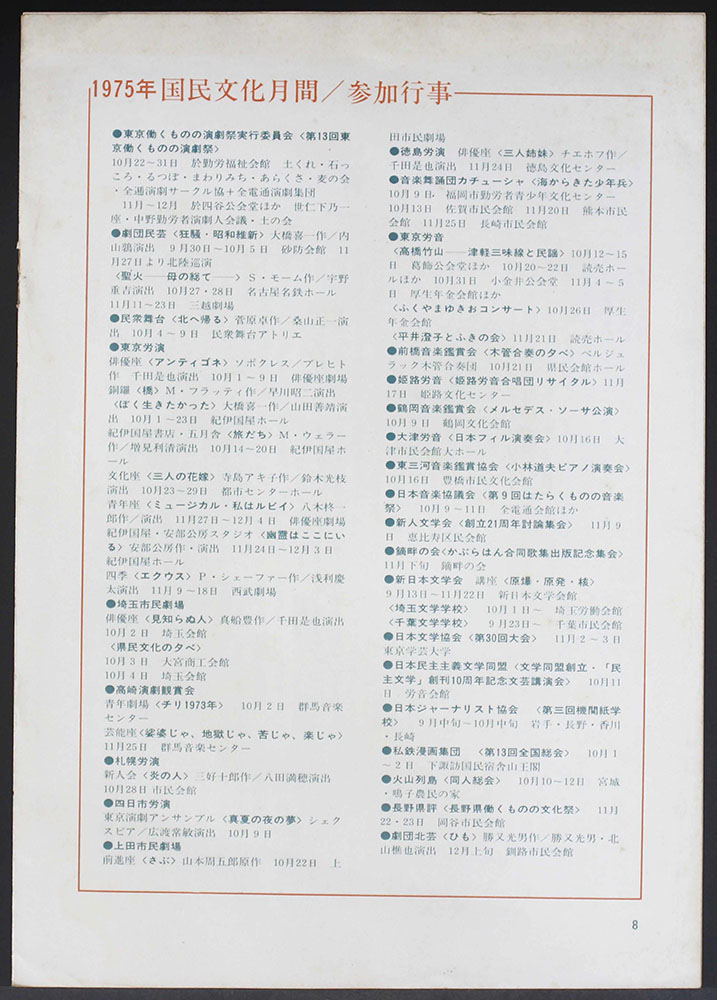 1975年 国民文化月間／参加行事
●東京働くものの演劇祭実行委員会〈第13回東
京働くものの演劇祭〉
10月22～31日　於勤労福祉会館　土くれ・石っ
ころ・るつぼ・まわりみち・あらくさ・麦の会
・全逓演劇サークル協＋全電通演劇集団
11月～12月　於四谷公会堂ほか　世仁下乃一
座・中野勤労者演劇人会議・土の会
●劇団民芸〈狂騒・昭和維新〉大橋喜一作／内
山鶉演出　9月30日～10月5日　砂防会館　11
月27日より北陸巡演
〈聖火――母の総て――〉S・モーム作／宇野
重吉演出　10月27・28日　名古屋名鉄ホール
11月11～23日　三越劇場
●民衆舞台〈北へ帰る〉菅原卓作／桑山正一演
出　10月4～9日　民衆舞台アトリエ
●東京労演
俳優座〈アンティゴネ〉ソポクレス／ブレヒト
作　千田是也演出　10月1～9日　俳優座劇場
銅鑼〈橋〉M・フラッティ作／早川昭二演出
〈ぼく生きたかった〉大橋喜一作／山田善靖演
出　10月1～23日　紀伊国屋ホール
紀伊国屋書店・五月舎〈旅だち〉M・ウェラー
作／増見利清演出　10月14～20日　紀伊国屋ホ
ール
文化座〈三人の花嫁〉寺島アキ子作／鈴木光枝
演出　10月23～29日　都市センターホール
青年座〈ミュージカル・私はルビイ〉八木柊一
郎作／演出　11月27日～12月4日　俳優座劇場
紀伊国屋・安部公房スタジオ〈幽霊はここにい
る〉安部公房作・演出　11月24日～12月3日
紀伊国屋ホール
四季〈エクウス〉P・シェーファー作／浅利慶
太演出　11月9～18日　西武劇場
●埼玉市民劇場
俳優座〈見知らぬ人〉真船豊作／千田是也演出
10月2日　埼玉会館
〈県民文化の夕べ〉
10月3日　大宮商工会館
10月4日　埼玉会館
●高崎演劇観賞会
青年劇場〈チリ1973年〉　10月2日　群馬音楽
センター
芸能座〈娑婆じゃ、地獄じゃ、苦じゃ、楽じゃ〉
11月25日　群馬音楽センター
●札幌労演
新人会〈炎の人〉三好十郎作／八田満穂演出
10月28日 市民会館
●四日市労演
東京演劇アンサンブル〈真夏の夜の夢〉シェク
スピア／広渡常敏演出　10月9日
●上田市民劇場
前進座〈さぶ〉山本周五郎原作　10月22日　上
田市民劇場
●徳島労演　俳優座〈三人姉妹〉チエホフ作／
千田是也演出　11月24日　徳島文化センター
●音楽舞踊団カチューシャ〈海からきた少年兵〉
10月9日　福岡市勤労者青少年文化センター
10月13日　佐賀市民会館　11月20日　熊本市民
会館　11月25日　長崎市民会館
●東京労音
〈高橋竹山――津軽三味線と民謡〉10月12～15
日　葛飾公会堂ほか　10月20～22日　読売ホー
ルほか　10月31日　小金井公会堂　11月4～5
日　厚生年金会館ほか
〈ふくやまゆきおコンサート〉10月26日　厚生
年金会館
〈平井澄子とふきの会〉11月21日　読売ホール
●前橋音楽鑑賞会〈木管合奏の夕べ〉ベルジュ
ラック木管合奏団　10月21日　県民会館ホール
●姫路労音〈姫路労音合唱団リサイタル〉11月
17日　姫路文化センター
●鶴岡音楽鑑賞会〈メルセデス・ソーサ公演〉
10月9日　鶴岡文化会館
●大津労音〈日本フィル演奏会〉10月16日　大
津市民会館大ホール
●東三河音楽鑑賞協会〈小林道夫ピアノ演奏会〉
10月16日　豊橋市民文化会館
●日本音楽協議会〈第9回はたらくものの音楽
祭〉　10月9～11日　全電通会館ほか
●新人文学会〈創立21周年討論集会〉　11月9
日　恵比寿区民会館
●鏑畔の会〈かぶらはん合同歌集出版記念集会〉
11月下旬　鏑畔の会
●新日本文学会　講座〈原爆・原発・核〉
9月13日～11月22日　新日本文学会館
〈埼玉文学学校〉　10月1日～　埼玉労働会館
〈千葉文学学校〉　9月23日～　千葉市民会館
●日本文学協会〈第30回大会〉　11月2～3日
東京学芸大学
●日本民主主義文学同盟〈文学同盟創立・「民
主文学」創刊10周年記念文芸講演会〉　10月11
日　労音会館
●日本ジャーナリスト協会　〈第三回機関紙学
校〉　9月中旬～10月中旬　岩手・長野・香川
・長崎
●私鉄漫画集団　〈第13回全国総会〉　10月1
～2日　下諏訪国民宿舎山王閣
●火山列島〈同人総会〉　10月10～12日　宮城
・鳴子農民の家
●長野県評〈長野県働くものの文化祭〉　11月
22・23日　岡谷市民会館
●劇団北芸〈ひも〉勝又光男作／勝又光男・北
山樵也演出　12月上旬　釧路市民会館
8